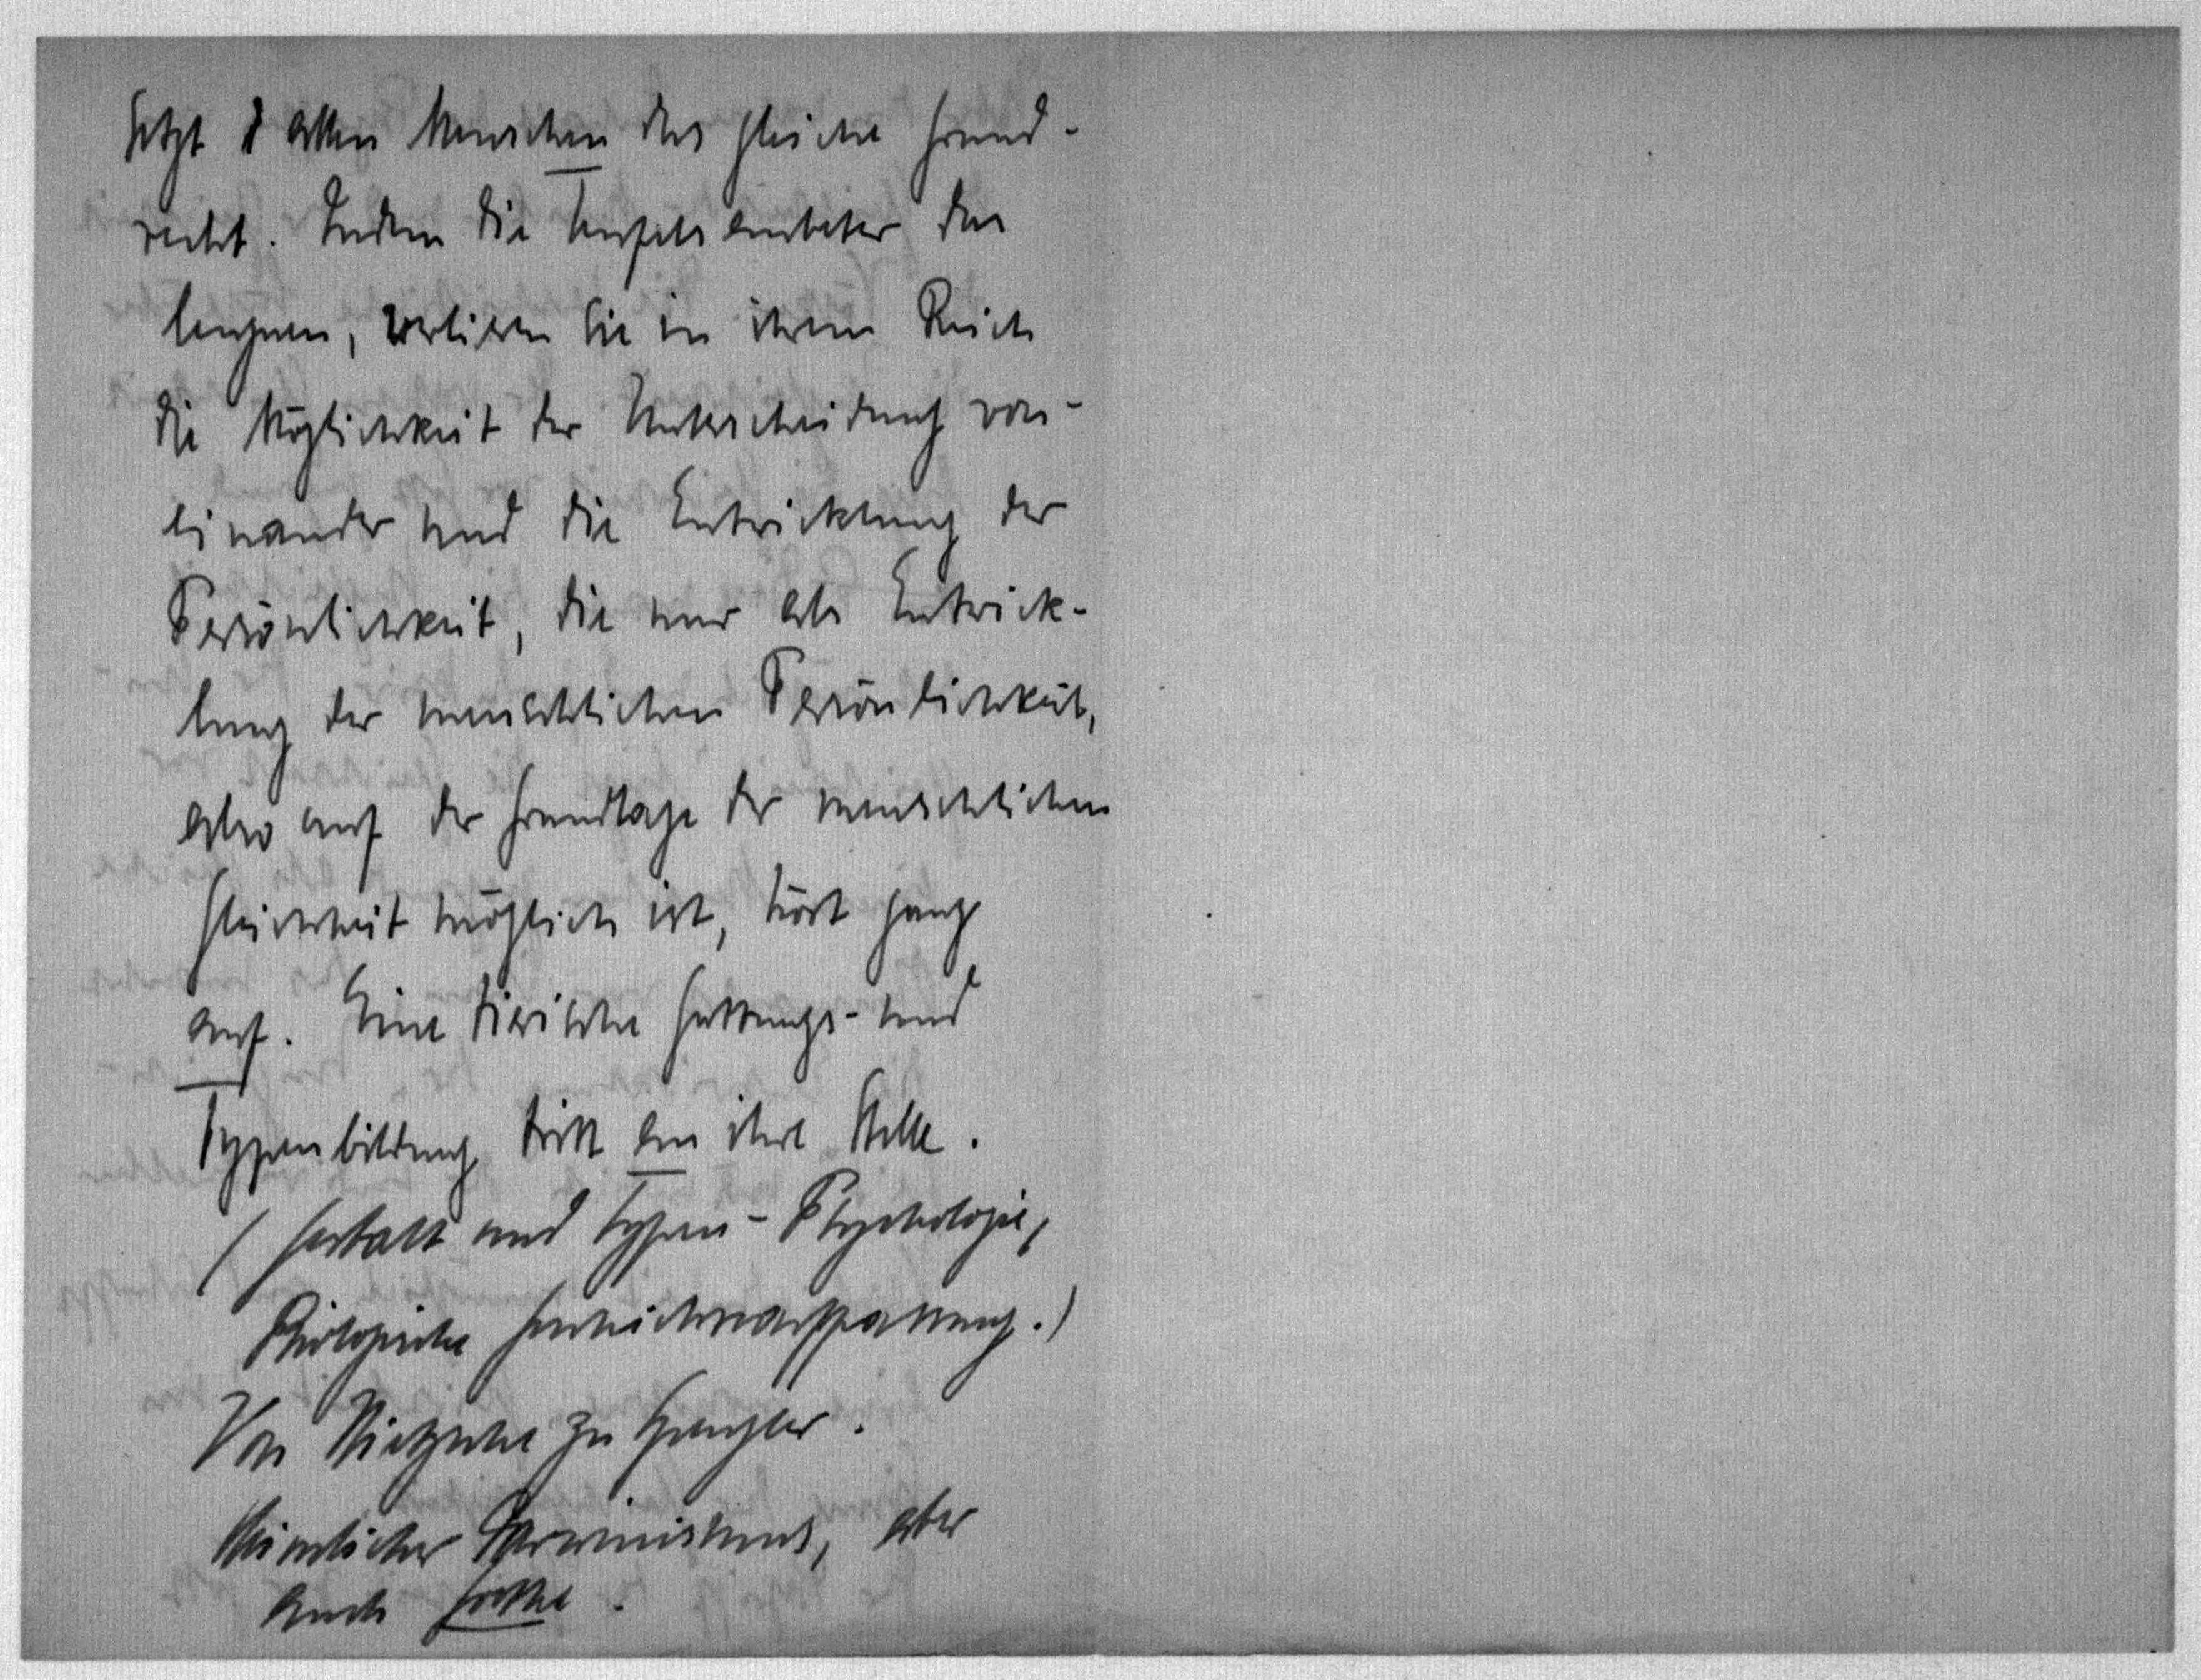 setzt allen Menschen das gleiche Grund-
recht. Indem die Teufelsanbeter das
leugnen, verlieren sie in ihrem Reich
die Möglichkeit der Unterscheidung von-
einander und die Entwicklung der
Persönlichkeit, die nur als Entwick-
lung der menschlichen Persönlichkeit,
also auf der Grundlage der menschlichen
Gleichheit möglich ist, hört ganz
auf. Eine tierische Gattungs- und
Typenbildung tritt an ihre Stelle.
(Gestalt und Typen-Psychologie,
Geschichtsauffassung.)
Von Nietzsche zu Spengler.
Heimlicher Darwinismus, aber
auch Goethe.